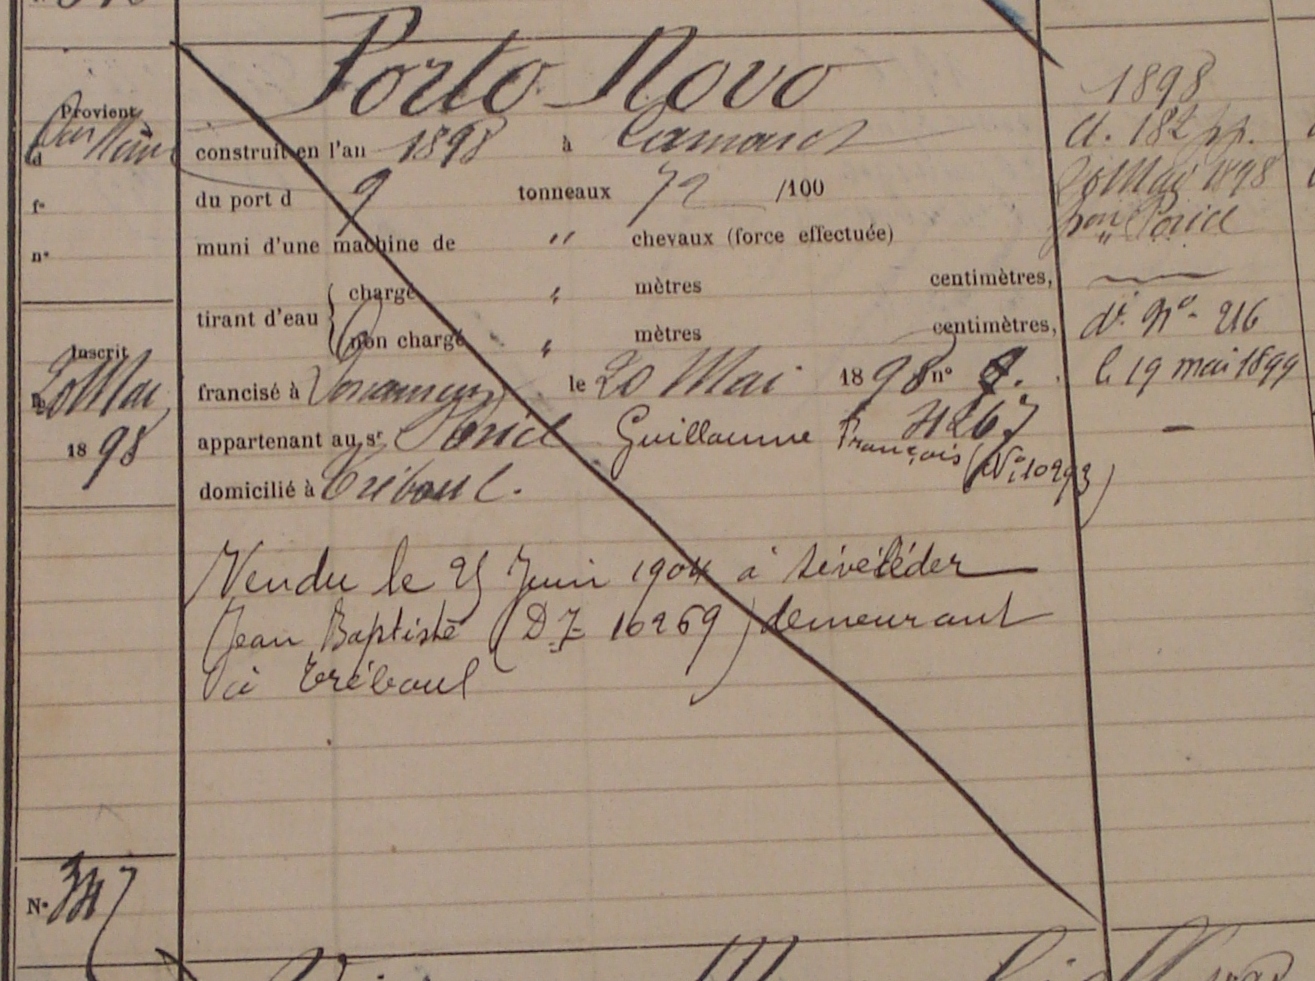 Porto Novo
Provient
d
fº
nº
construit en l'an 1898 à Camaret
du port d 9 tonneaux 72 /100
muni d'une machine de " chevaux (force effectuée)
tirant d'eau { chargé " mètres centimètres,
non chargé " mètres centimètres,
Inscrit
20 Mai
1898
francisé à Douarnenez le 20 Mai 1898 nº
4267
appartenant au sr Guillaume François (Nº 10293)
domicilié à Tréboul.
Vendu le 25 Juin 1904 à Sévéléder
Jean Baptiste (DZ 16269) demeurant
à Tréboul
Nº 347
1898
20 Mai 1898
dº Nº 216
le 19 mai 1899